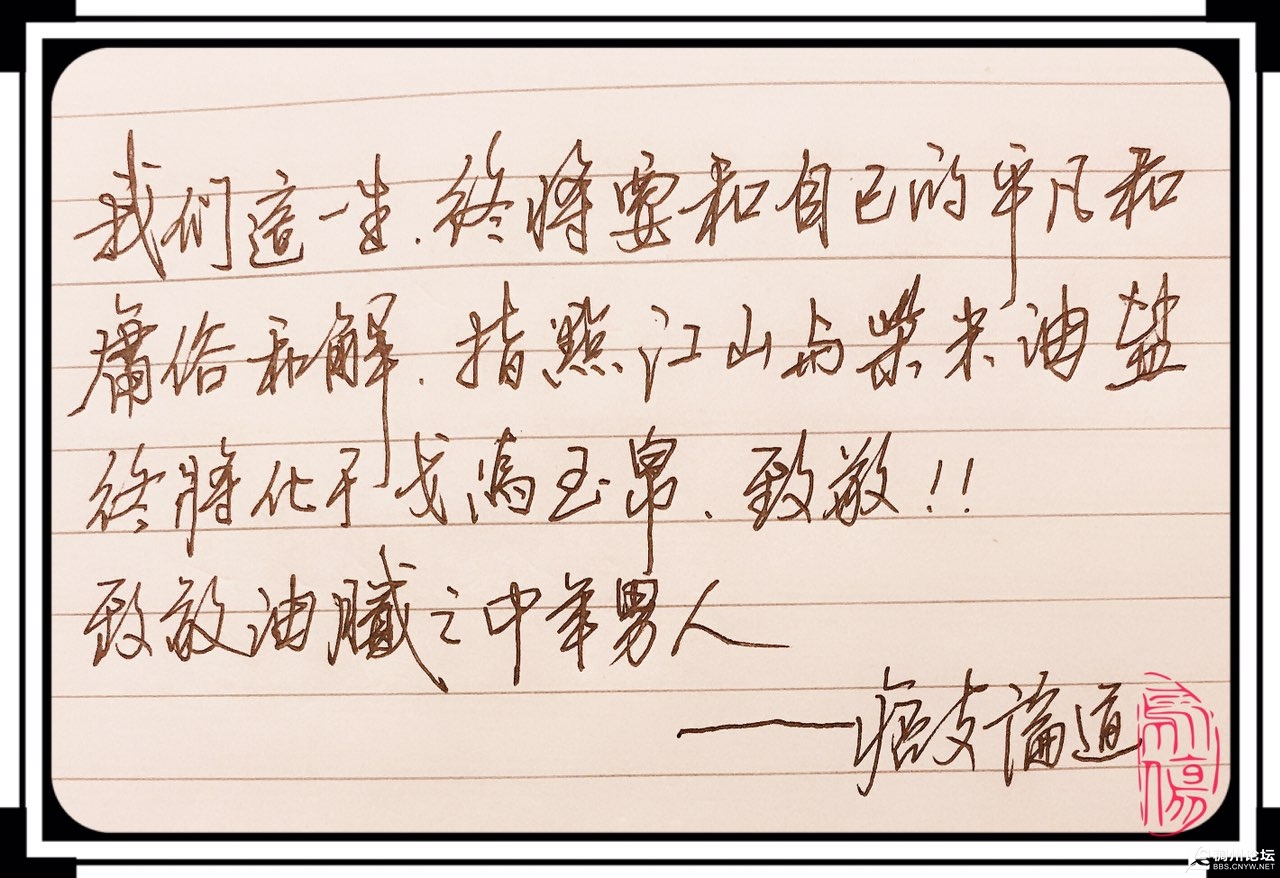 我们這一生.终将要和自己的平凡和
庸俗和解.指點江山与柴米油盐
终將化干戈為玉帛.致敬!!
致敬油膩之中年男人
——支論道
稠州论坛
BBS.CNYW.NET